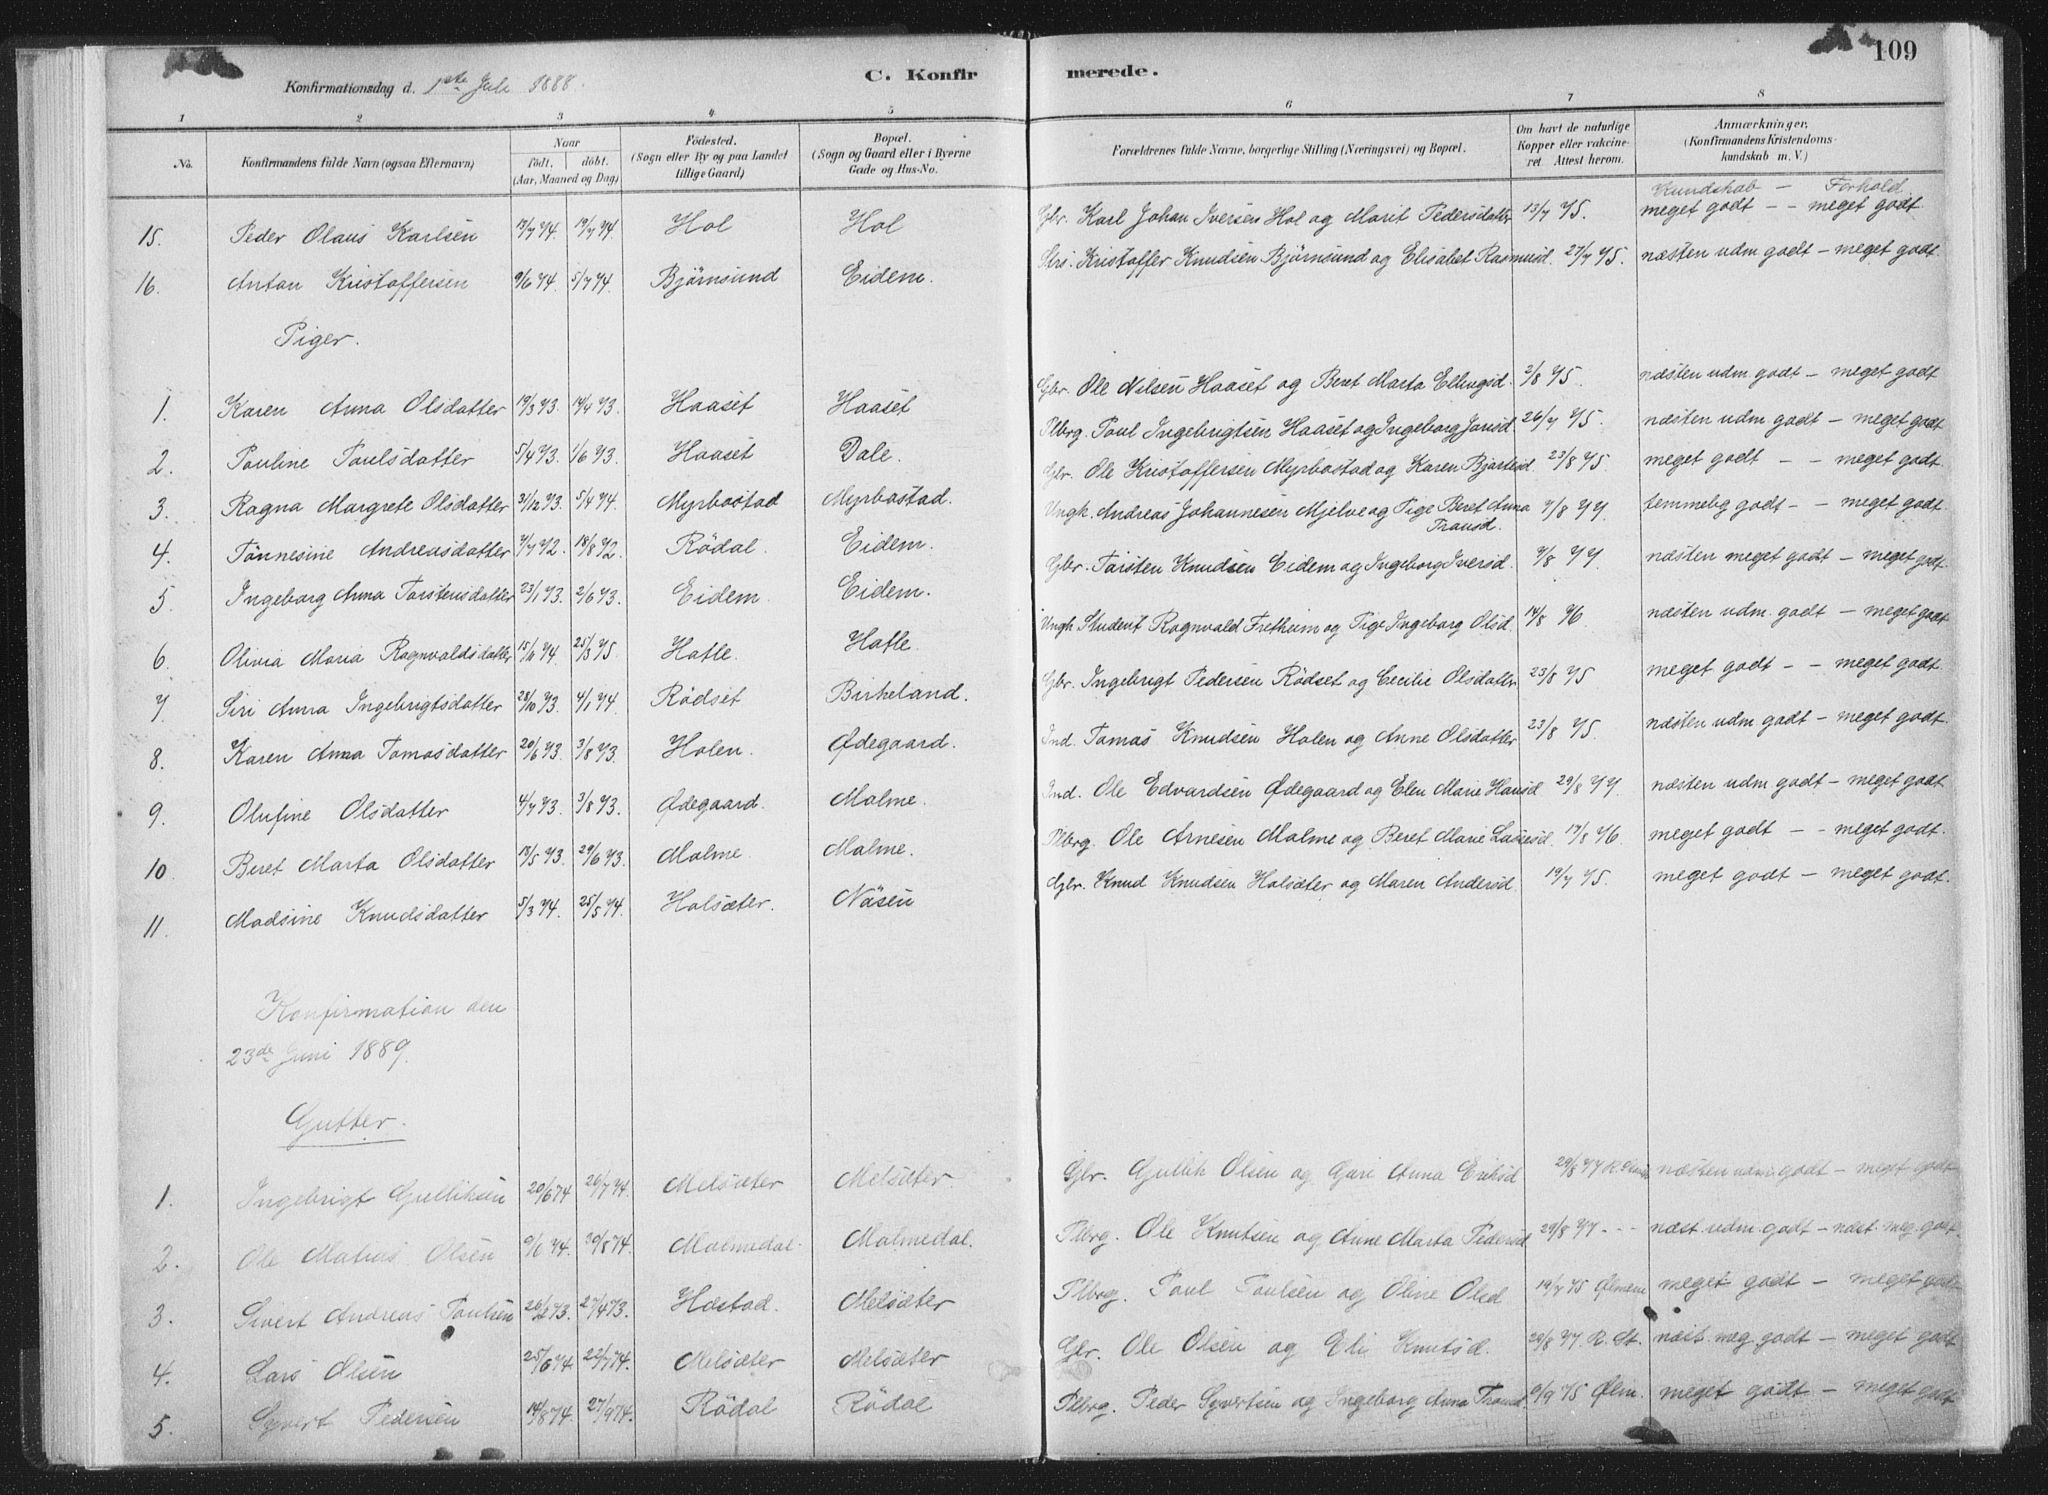 109
C. Konfirmerede.
Konfirmationsdag d. 1ste Juli 1888.
1 2 3 4 5 6 7 8
No. Konfirmandens fulde Navn (ogsaa Efternavn) Naar født, døbt. (Aar, Maaned og Dag) Fødested. (Sogn eller By og paa Landet tillige Gaard) Bopæl. (Sogn og Gaard eller i Byerne Gade og Hus-No. Forældrenes fulde Navne, borgerlige Stilling (Næringsvei) og Bopæl. Om havt de naturlige Kopper eller vakcineret Attest herom. Anmærkninger. (Konfirmandens Kristendomskundskab m. V.)
Kundskab — Forhold
15. Peder Olaus Karlsen 13/7 74. 19/7 74. Hol Hol Gbr. Karl Johan Iversen Hol og Marit Pedersdatter 13/7 75. meget godt - - meget godt
16. Anton Kristoffersen 9/6 74. 5/7 74. Bjørnsund Eidem. Kristoffer Knudsen Bjørnsund og Elisabet Rasmusd. 27/7 75. næsten udm godt - meget godt
Piger.
1. Karen Anna Olsdatter 19/3 73. 14/4 73. Haaset Haaset Gbr. Ole Nilsen Haaset og Beret Marta Ellingsd. 2/8 75. næsten udm godt - meget godt
2. Pauline Paulsdatter 5/4 73. 1/6 73. Haaset Dale. Plbrg. Poul Ingebrigtsen Haaset og Ingeborg Jonsd. 26/7 75. næsten udm godt - meget godt
3. Ragna Margrete Olsdatter 31/12 73. 5/4 74. Myrbostad Myrbostad. Gbr. Ole Kristoffersen Myrbostad og Karen Bjartesd. 23/8 75. meget godt - - meget godt.
4. Tønnesine Andreasdatter 7/7 72. 18/8 72. Rödal. Eidem. Ungk. Andreas Johannesen Mjelve og Pige Beret Anna Transd. 7/8 77. temmelig godt - - meget godt.
5. Ingeborg Anna Torstensdatter 23/1 73. 2/6 73. Eidem. Eidem. Gbr. Torsten Knudsen Eidem og Ingeborg Iversd. 7/8 77. næsten meget godt - meget godt.
6. Olivia Maria Ragnvaldsdatter 25/3 75. Hatle. Hatle. Ungk. Student Ragnvald Fretheim og Pige Ingeborg Olsd. 14/8 76. næsten udm. godt - meget godt
7. Siri Anna Ingebrigtsdatter 28/10 73. 4/1 74. Rödset Birkeland. Gbr. Ingebrigt Pedersen Rödset og Cecilie Olsdatter 23/8 75 meget godt - - meget godt.
8. Karen Anna Tomasdatter 20/6 73. 3/8 73. Holen. Ødegaard. Ind. Tomas Knudsen Holen og Anne Olsdatter 23/8 75. næsten udm godt - meget godt.
9. Olufine Olsdatter 4/7 73. 3/8 73. Ødegaard. Malme. Ind. Ole Edvardsen Ødegaard og Elen Marie Hansd. 29/8 77. næsten udm godt - meget godt
10. Beret Marta Olsdatter 18/5 73. 29/6 73. Malme. Malme. Plbrg. Ole Arnesen Malme og Beret Marie Lassesd. 17/8 76 meget godt - - meget godt.
11. Madsine Knudsdatter 5/3 74. 25/5 74. Holsæter. Näsen Gbr. Knud Knudsen Holsæter og Maren Andersd. 19/7 75. meget godt - meget godt.
Konfirmation den
23de Juni 1889.
Gutter.
1. Ingebrigt Gulliksen 20/6 74 26/7 74. Melsæter Melsæter. Gbr. Gulik Olsen og Guri Anna Eriksd 29/8 77 næsten udm godt - meget godt
2. Ole Matias Olsen 9/6 74. 30/8 74. Malmedal. Malmedal. Plbrg. Ole Knutsen og Anne Marta Pedersd 29/8 77 - - - næst. udm. godt - næst. meg. godt.
3. Sivert Andreas Poulsen 26/2 73. 27/4 73. Hæstad. Melsæter Plbrg. Poul Poulsen og Oline Olsd 19/7 75 meget godt - meget godt
4. Lars Olsen 25/6 74. 22/7 74. Melsæter Melsæter Gbr. Ole Olsen og Eli Knutsd. 29/8 77. R. St. næst. meg. godt - meget godt
5. Syvert Pedersen 14/8 74. 27/9 74. Rödal Rödal Plbrg. Peder Syvertsen og Ingeborg Anna Traned 9/9 75 Ølm. meget godt - meget godt